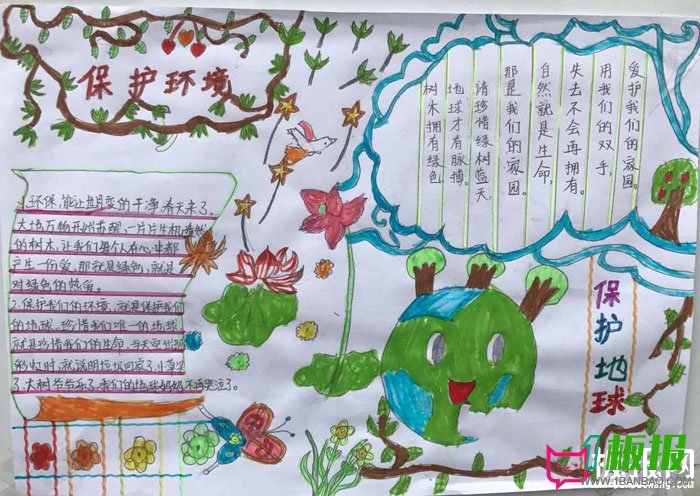 保护环境
爱护我们的家园。
用我们的双手,
失去不会再拥有。
自然就是生命,
那是我们的家园。
请珍惜绿树蓝天,
地球才有脉搏。
树木拥有绿色
1.环保,能让地球变的干净,春天来了,
大地万物开始苏醒,一片片生机勃勃
的树木,让我们每个人在心中都
产生一份爱,那就是绿色,就是
对绿色的热爱。
2.保护我们的环境,就是保护我们
的地球,珍惜我们唯一的地球
就是珍惜我们的生命,当天空出现
彩虹时,就说明垃圾回家了,小草笑
了,大树爷爷乐了,我们的地球妈妈不再哭泣了。
保护地球
板报
WWW.1BANBAO.COM